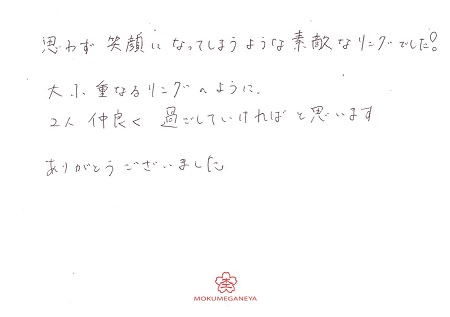 思わず 笑顔になってしまうような素敵なリングでした!
大小重なるリングのように、
2人 仲良く 過ごしていければと思います
ありがとうございました
MOKUMEGANEYA